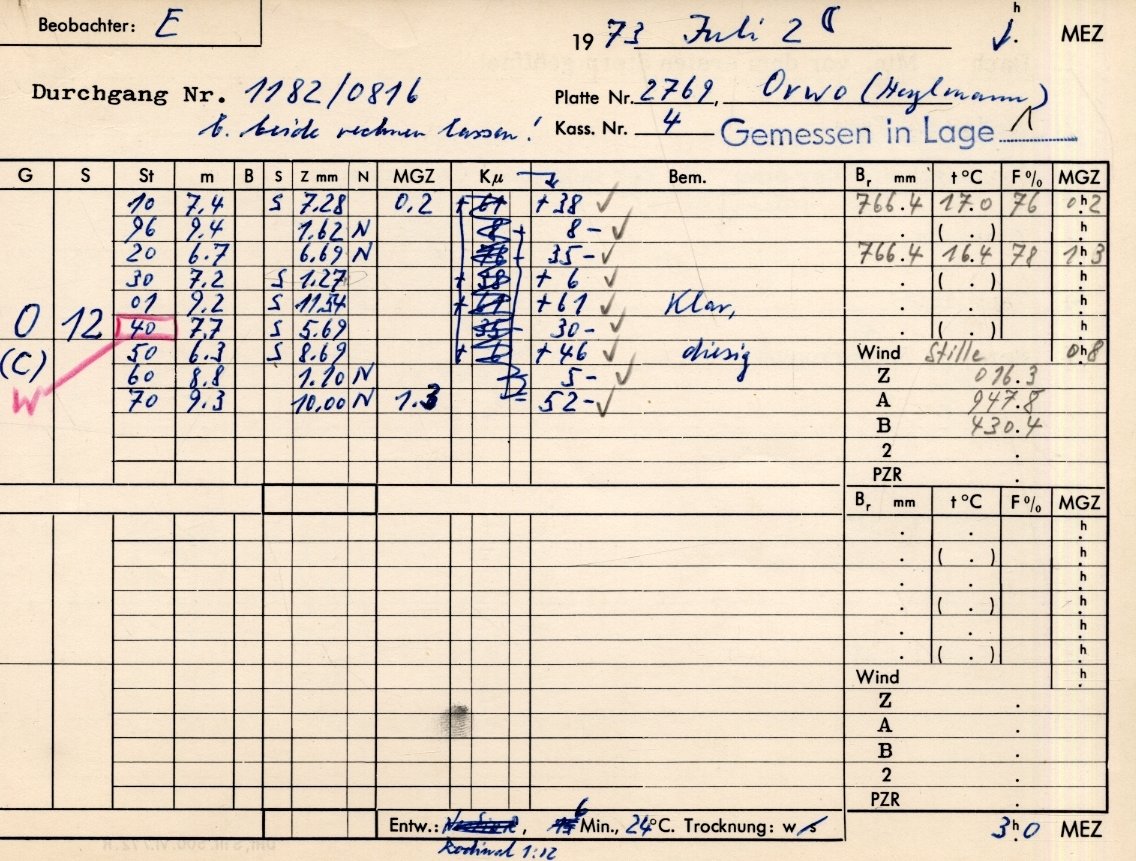 Beobachter: E
1973 Juli 28 h. MEZ
Durchgang Nr. 1182/0816
Platte Nr. 2769, Orwo (Heylmann)
b. beide rechnen lassen!
Kass. Nr. 4 Gemessen in Lage
G S St m B S Z mm N MGZ Kμ Bem. Br mm t°C F% MGZ
10 7.4 S 7.28 0.2 + 61 +38 766.4 17.0 76 0h2
96 9.4 1.62 N 8 8- . ( . ) h.
20 6.7 6.69 N 35- 766.4 16.4 78 1h3
30 7.2 S 1.27 + 58 + 6 . ( . ) h.
01 9.2 S 11.54 + 61 +61 Klar, . . h.
0 12 40 7.7 S 5.69 35- 30- . ( . ) h.
(C) 50 6.3 S 8.69 + 6 +46 diesig Wind Stille 0h8
60 8.8 1.10 N 5- Z 016.3
W 70 9.3 10.00 N 1.3 52- A 947.8
B 430.4
2 .
PZR .
Br mm t°C F% MGZ
. . h.
. ( . ) h.
. . h.
. ( . ) h.
. . h.
. ( . ) h.
Wind h.
Z .
A .
B .
2 .
PZR .
Entw.: , 6 Min., 24°C. Trocknung: w/s 3h.0 MEZ
Rodinal 1:12